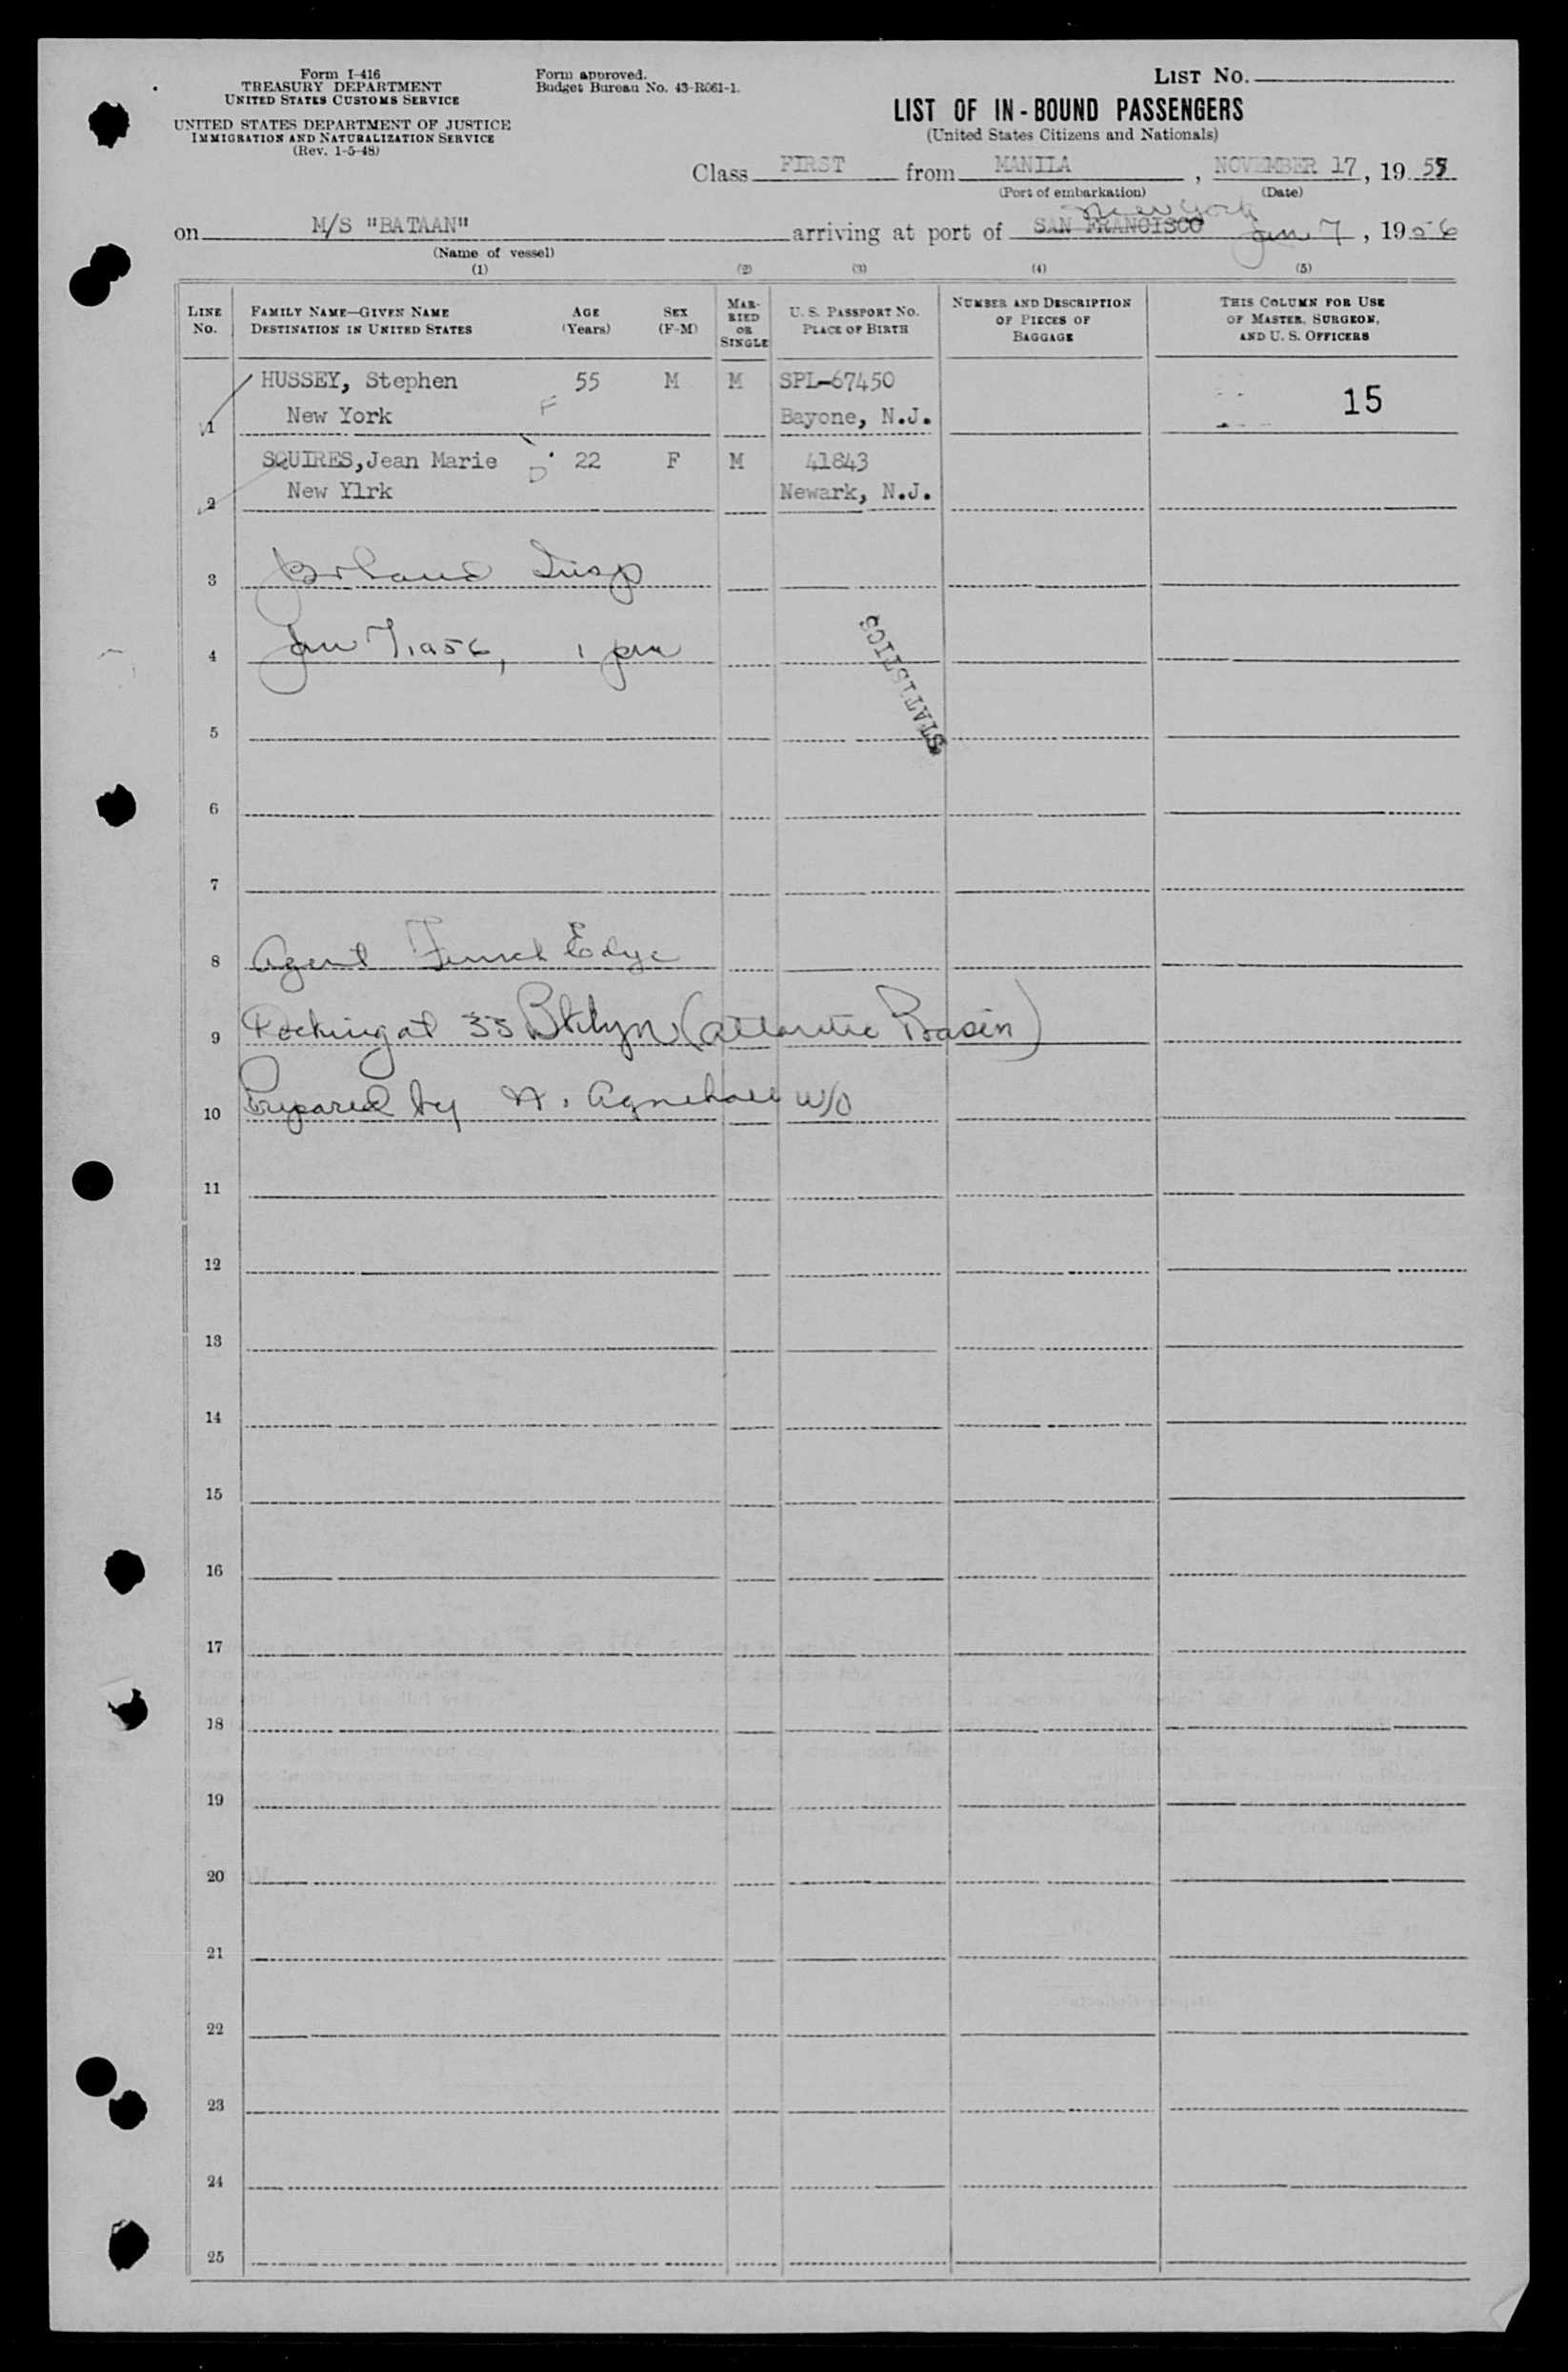 Form I-416
TREASURY DEPARTMENT
UNITED STATES CUSTOMS SERVICE
UNITED STATES DEPARTMENT OF JUSTICE
IMMIGRATION AND NATURALIZATION SERVICE
(Rev. 1-5-48)
Form approved.
Budget Bureau No. 43-R061-1.
LIST No.
LIST OF IN-BOUND PASSENGERS
(United States Citizens and Nationals)
Class FIRST from MANILA, NOVEMBER 17, 1955
(Port of embarkation) (Date)
New York
on M/S "BATAAN" arriving at port of SAN FRANCISCO Jan 7, 1956
(Name of vessel)
(1) (2) (3) (4) (5)
LINE No. FAMILY NAME—GIVEN NAME DESTINATION IN UNITED STATES AGE (Years) SEX (F-M) MARRIED OR SINGLE U. S. PASSPORT No. PLACE OF BIRTH NUMBER AND DESCRIPTION OF PIECES OF BAGGAGE THIS COLUMN FOR USE OF MASTER, SURGEON, AND U. S. OFFICERS
HUSSEY, Stephen 55 M M SPL-67450 15
1 New York F Bayone, N.J.
SQUIRES, Jean Marie D 22 F M 41843
2 New Ylrk Newark, N.J.
3 Insp
4 Jan 7, 1956, 1 pm
STATISTICS
5
6
7
8 Agent Funch Edye
9 Docking at 33 Bklyn (Atlantic Basin)
10 Prepared by
11
12
13
14
15
16
17
18
19
20
21
22
23
24
25